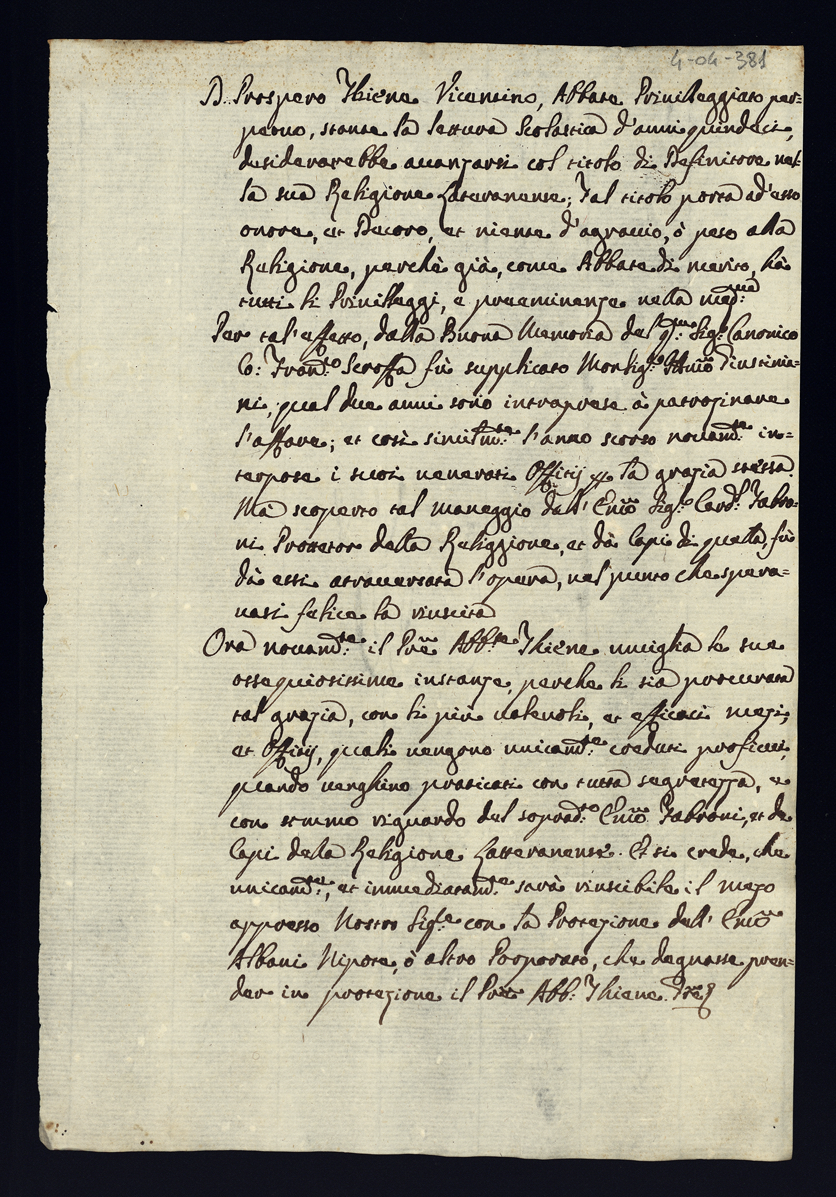 4-04-381
D. Prospero Thiene Vicentino, Abbate Privilleggiato per=
petuo, stante la lettura Scolastica d'anni quindeci,
desiderarebbe avanzarsi col titolo di Definitore nel=
la sua Religione Lateranense; Tal titolo porta ad'esso
onore, et Decoro, et niente d'agravio, ò peso alla
Religione, perchè già, come Abbate di merito, hà
tutti li Privilleggi, e preeminenze nella med:ma
Per tal'effetto, dalla Buona Memoria del q:m Sig:r Canonico
Co: Fran:co Scroffa fù supplicato Monsig:r Giustinia=
ni, qual due anni sono intraprese à patrozinare
l'affare; et così similm:te l'anno scorso novam:te in=
terpose i suoi venerati Offitij per la grazia stessa.
Mà scoperto tal maneggio dall' Em:o Sig:r Card:l Fabro=
ni Protetor della Religgione, et dà Capi di quella, fù
dà essi atraversata l'opera, nel punto che spera=
vasi felice la riuscita
Ora novam:te il P're Abb:te Thiene umiglia le sue
ossequiosissime instanze, perche li sia procurata
tal grazia, con li più valevoli, et efficaci mezi,
et Offitij, quali vengono unicam:te creduti proficui,
quando venghino praticati con tutta segretezza, e
con sommo riguardo del soprad:to Em:o Fabroni, et de
Capi della Religione Latteranense. Et si crede, che
unicam:te, et immediatam:te sarà riuscibile il mezo
appresso Nostro Sig:re con la Protezione dell' Em:o
Albani Nipote, ò altro Porporato, che degnasse pren=
der in protezione il P're Abb: Thiene.